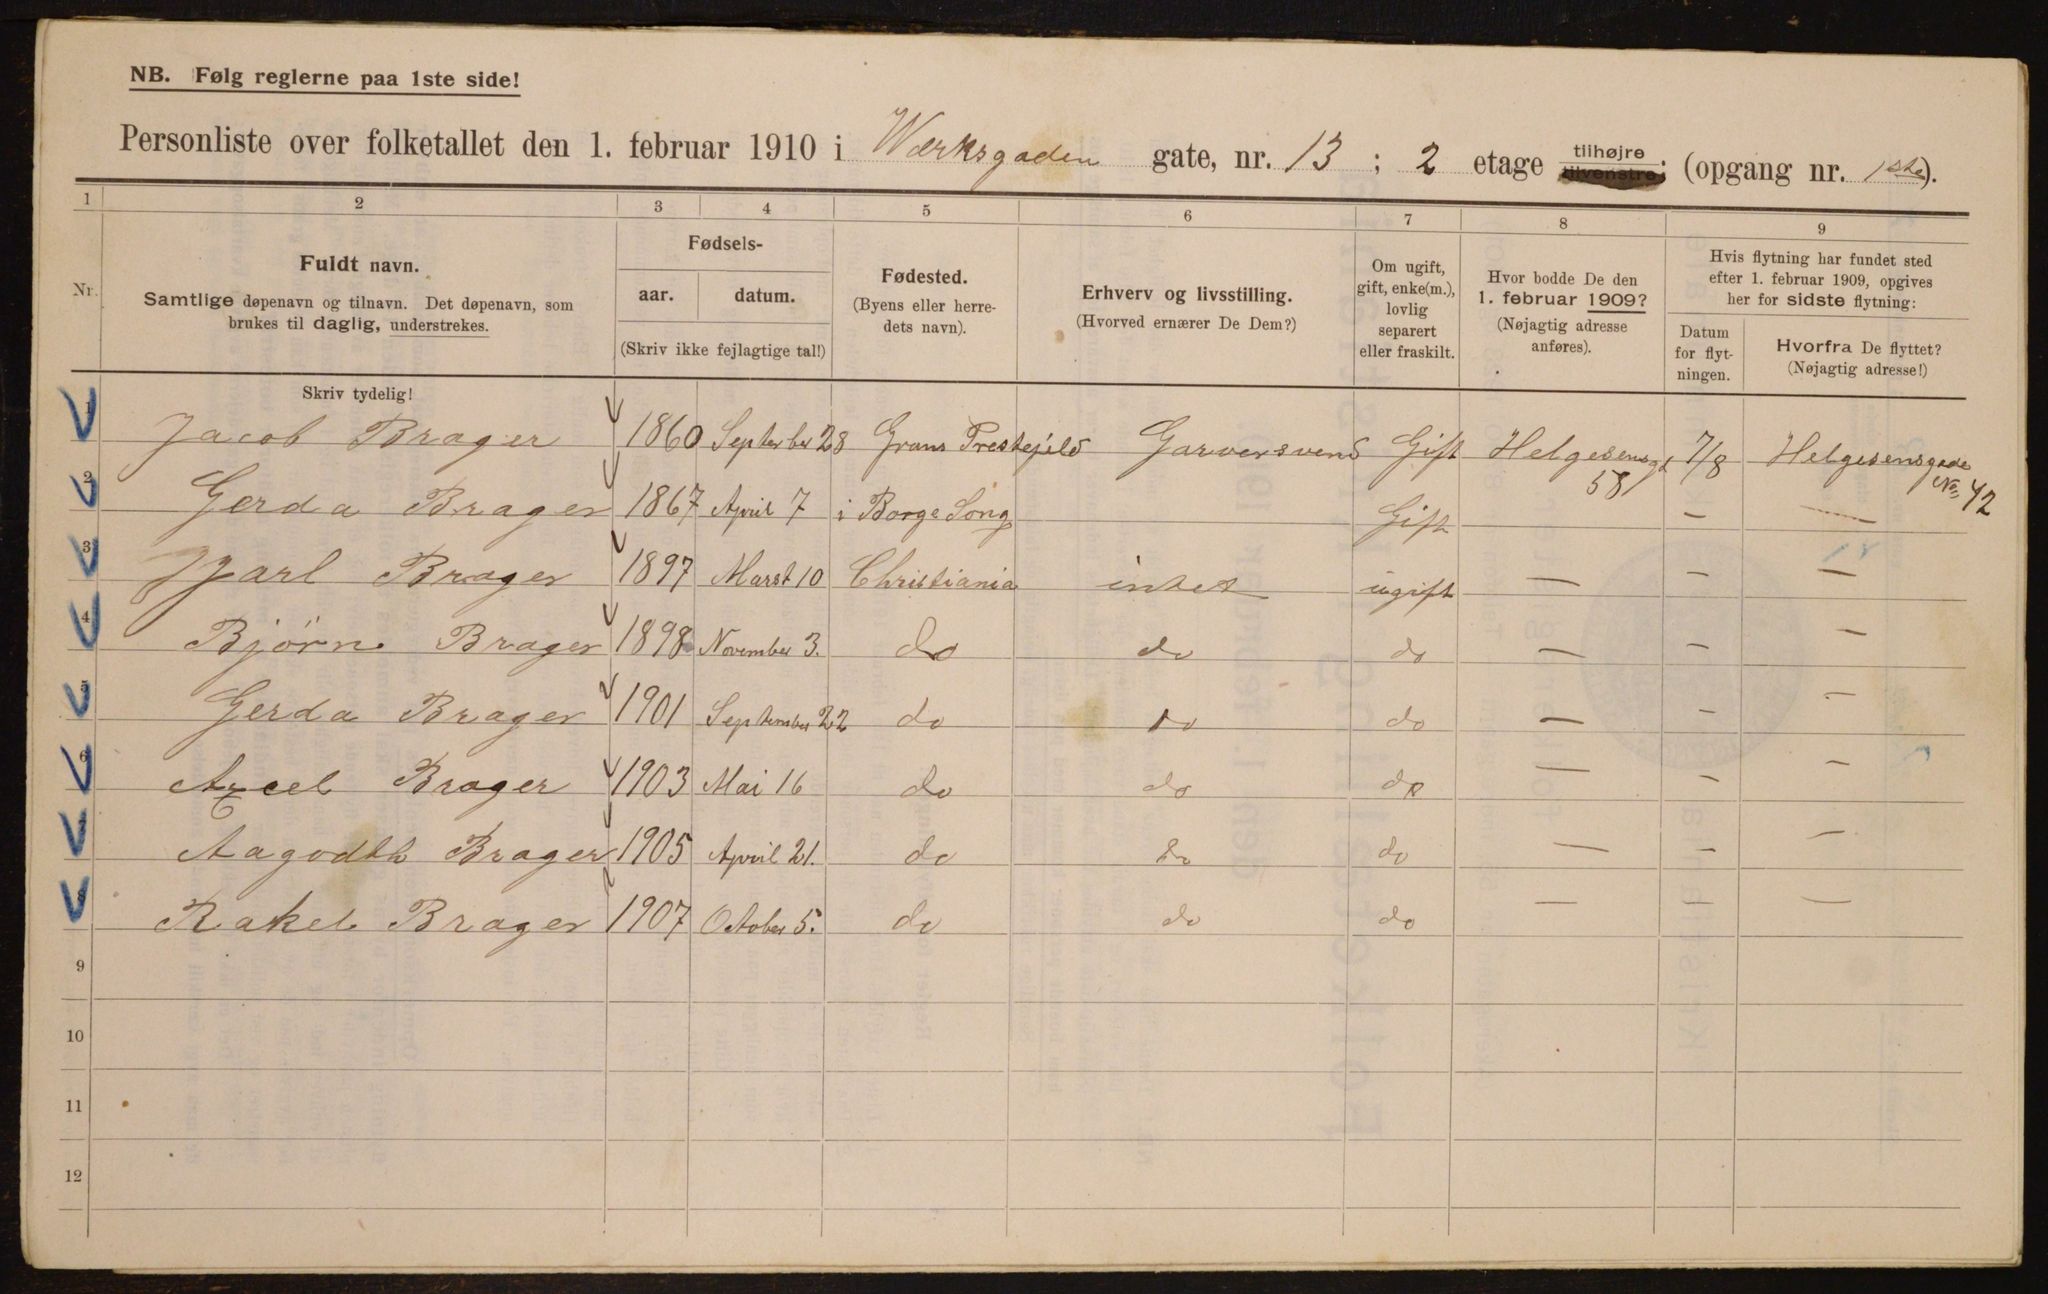 NB. Følg reglerne paa 1ste side!
Personliste over folketallet den 1. februar 1910 i Værksgaden gate, nr. 13 ; 2 etage tilhøjre tilvenstre; (opgang nr. 1ste).
1 2 3 4 5 6 7 8 9
Nr.
Fuldt navn.
Samtlige døpenavn og tilnavn. Det døpenavn, som
brukes til daglig, understrekes.
Fødsels-
aar. datum.
(Skriv ikke fejlagtige tal!)
Fødested.
(Byens eller herre-
dets navn).
Erhverv og livsstilling.
(Hvorved ernærer De Dem?)
Om ugift,
gift, enke(m.),
lovlig
separert
eller fraskilt.
Hvor bodde De den
1. februar 1909?
(Nøjagtig adresse
anføres).
Hvis flytning har fundet sted
efter 1. februar 1909, opgives
her for sidste flytning:
Datum
for flyt-
ningen.
Hvorfra De flyttet?
(Nøjagtig adresse!)
Skriv tydelig!
1 Jacob Brager 1860 September 28 Grans Prestejeld Garversvend Gift Helgesensgt 58 7/8 Helgesensgade No 42
2 Gerda Brager 1867 April 7 i Borge Song Gift — —
3 Jarl Brager 1897 Marst 10 Christiania intet ugift — — —
4 Bjørn Brager 1898 November 3. do do do — — —
5 Gerda Brager 1901 September 22 do do do — — —
6 Axcel Brager 1903 Mai 16 do do do — — —
7 Aagodth Brager 1905 April 21. do do do — — —
8 Rakel Brager 1907 October 5. do do do — — —
9
10
11
12